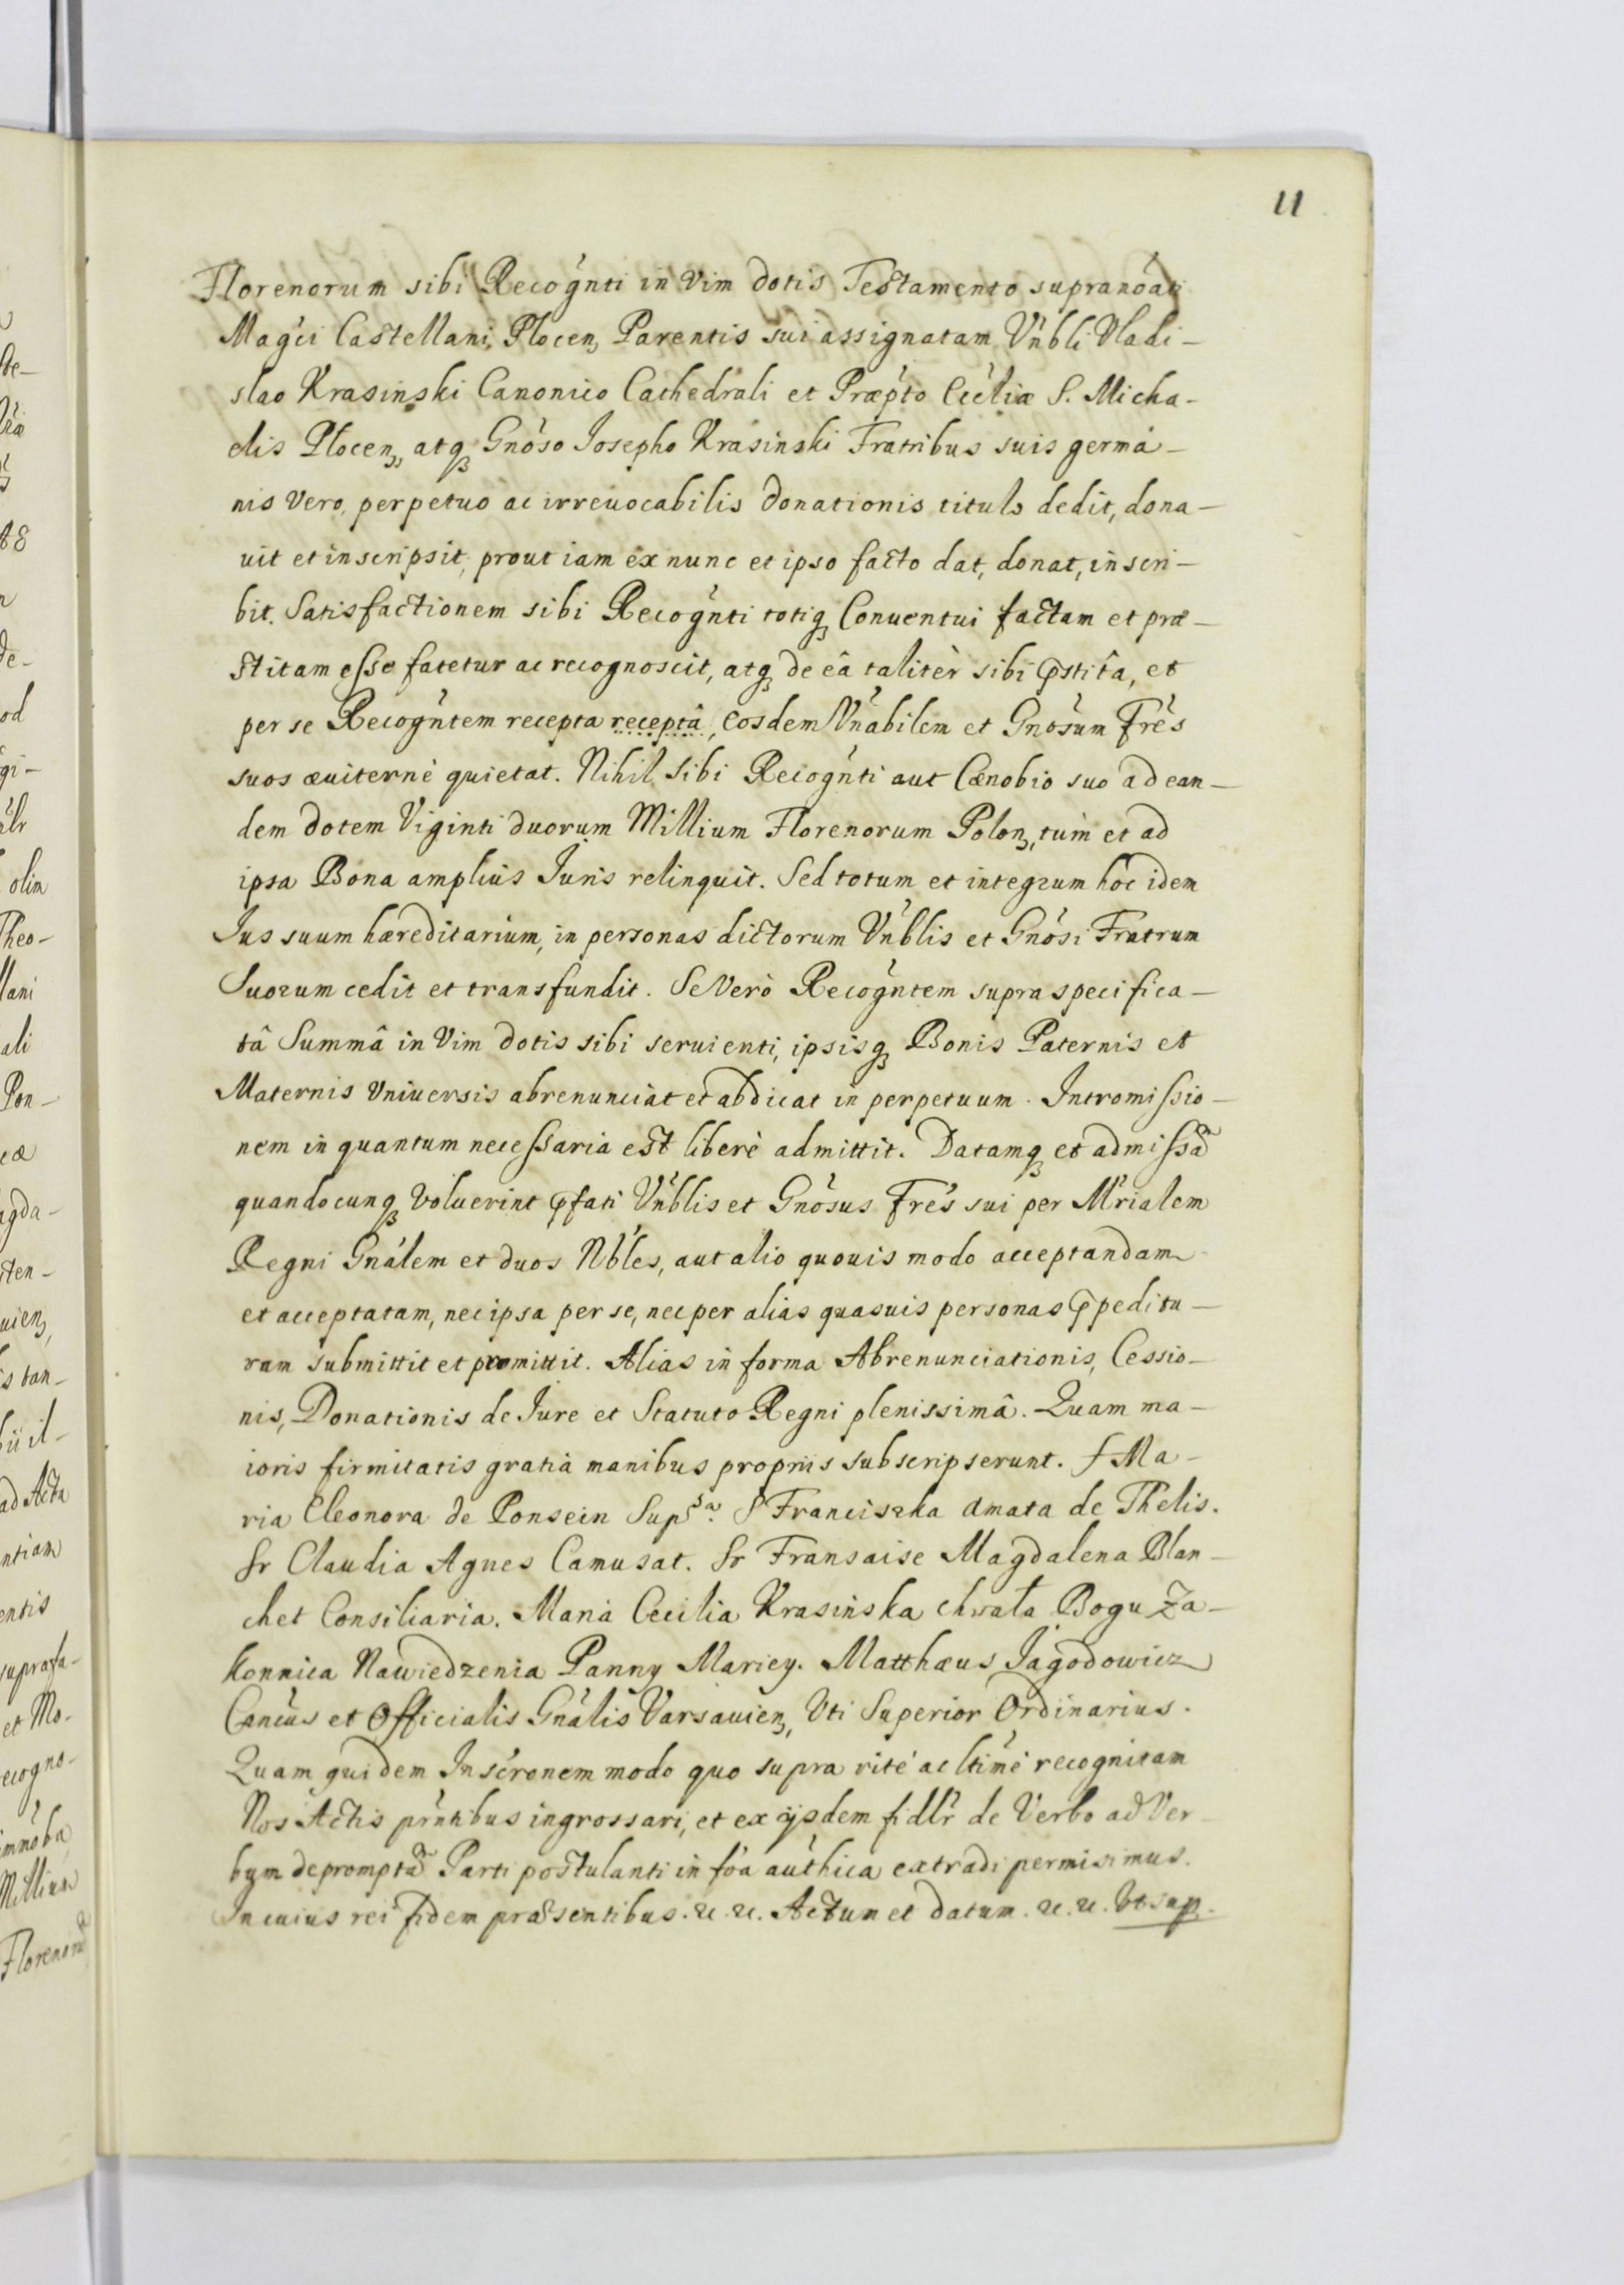 11
Florenorum sibi Recognti in vim dotis Testamento supranoati
Magci Castellani Plocen, Parentis sui assignatam Vnbli Vladi-
slao Krasinski Canonico Cathedrali et Præpto Ecclię S. Micha-
elis Plocen, atq Gnoso Iosepho Krasinski Fratribus suis germa-
nis vero, perpetuo ac irreuocabilis donationis titulo dedit, dona-
uit et inscripsit, prout iam ex nunc et ipso facto dat, donat, inscri-
bit. Satisfactionem sibi Recognti totiq Conuentui factam et præ-
stitam esse fatetur ac recognoscit, atq de eâ taliter sibi pstita, et
per se Recogntem recepta receptâ, eosdem Vnabilem et Gnosum Fres
suos æuiternè quietat. Nihil sibi Recognti aut Cænobio suo ad ean-
dem dotem Viginti duorum Millium Florenorum Polon, tum et ad
ipsa Bona amplius Iuris relinquit. Sed totum et integrum hoc idem
Ius suum hæreditarium, in personas dictorum Vnblis et Gnosi Fratrum
Suorum cedit et transfundit. Se Verò Recogntem supra specifica-
tâ Summâ in Vim dotis sibi seruienti, ipsisq Bonis Paternis et
Maternis Vniuersis abrenunciat et abdicat in perpetuum. Intromissio-
nem in quantum necessaria est liberè admittit. Datamq et admissã
quandocunq Voluerint pfati Vnblis et Gnosus Fres sui per Mrialem
Regni Gnalem et duos Nbles, aut alio quouis modo acceptandam
et acceptatam, nec ipsa per se, nec per alias quasuis personas ppeditu-
ram submittit et promittit. Alias in forma Abrenunciationis, Cessio-
nis, Donationis de Iure et Statuto Regni plenissimâ. Quam ma-
ioris firmitatis gratia manibus propriis subscripserunt. S Ma-
ria Eleonora de Ponsein Supsa. S Franciszka Amata de Thelis.
Sr Claudia Agnes Camusat. Sr Fransaise Magdalena Blan-
chet Consiliaria. Maria Cecilia Krasinska chwała Bogu Za-
konnica Nawiedzenia Panny Mariey. Matthæus Jagodowicz
Cancus et Officialis Gnalis Varsauien, Vti Superior Ordinarius.
Quam quidem Inscronem modo quo supra ritè ac ltimè recognitam
Nos Actis prntibus ingrossari, et ex ijsdem fidlr de Verbo ad Ver-
bum depromptã Parti postulanti in foa authica extradi permisimus.
In cuius rei fidem præsentibus. &. &. Actum et datum. &. &. Vt sup.